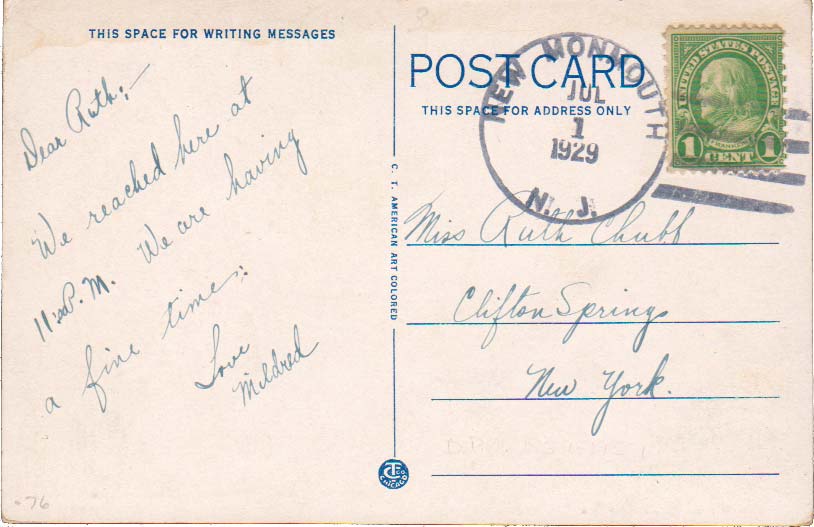 THIS SPACE FOR WRITING MESSAGES
Dear Ruth:-
We reached here at
11:30 P.M. We are having
a fine time.
Love
Mildred
C. T. AMERICAN ART COLORED
CTCo
CHICAGO
POST CARD
THIS SPACE FOR ADDRESS ONLY
NEW MONMOUTH
JUL
1
1929
N. J.
UNITED STATES POSTAGE
FRANKLIN
1 CENT 1
Miss Ruth Chubb
Clifton Springs
New York.
76